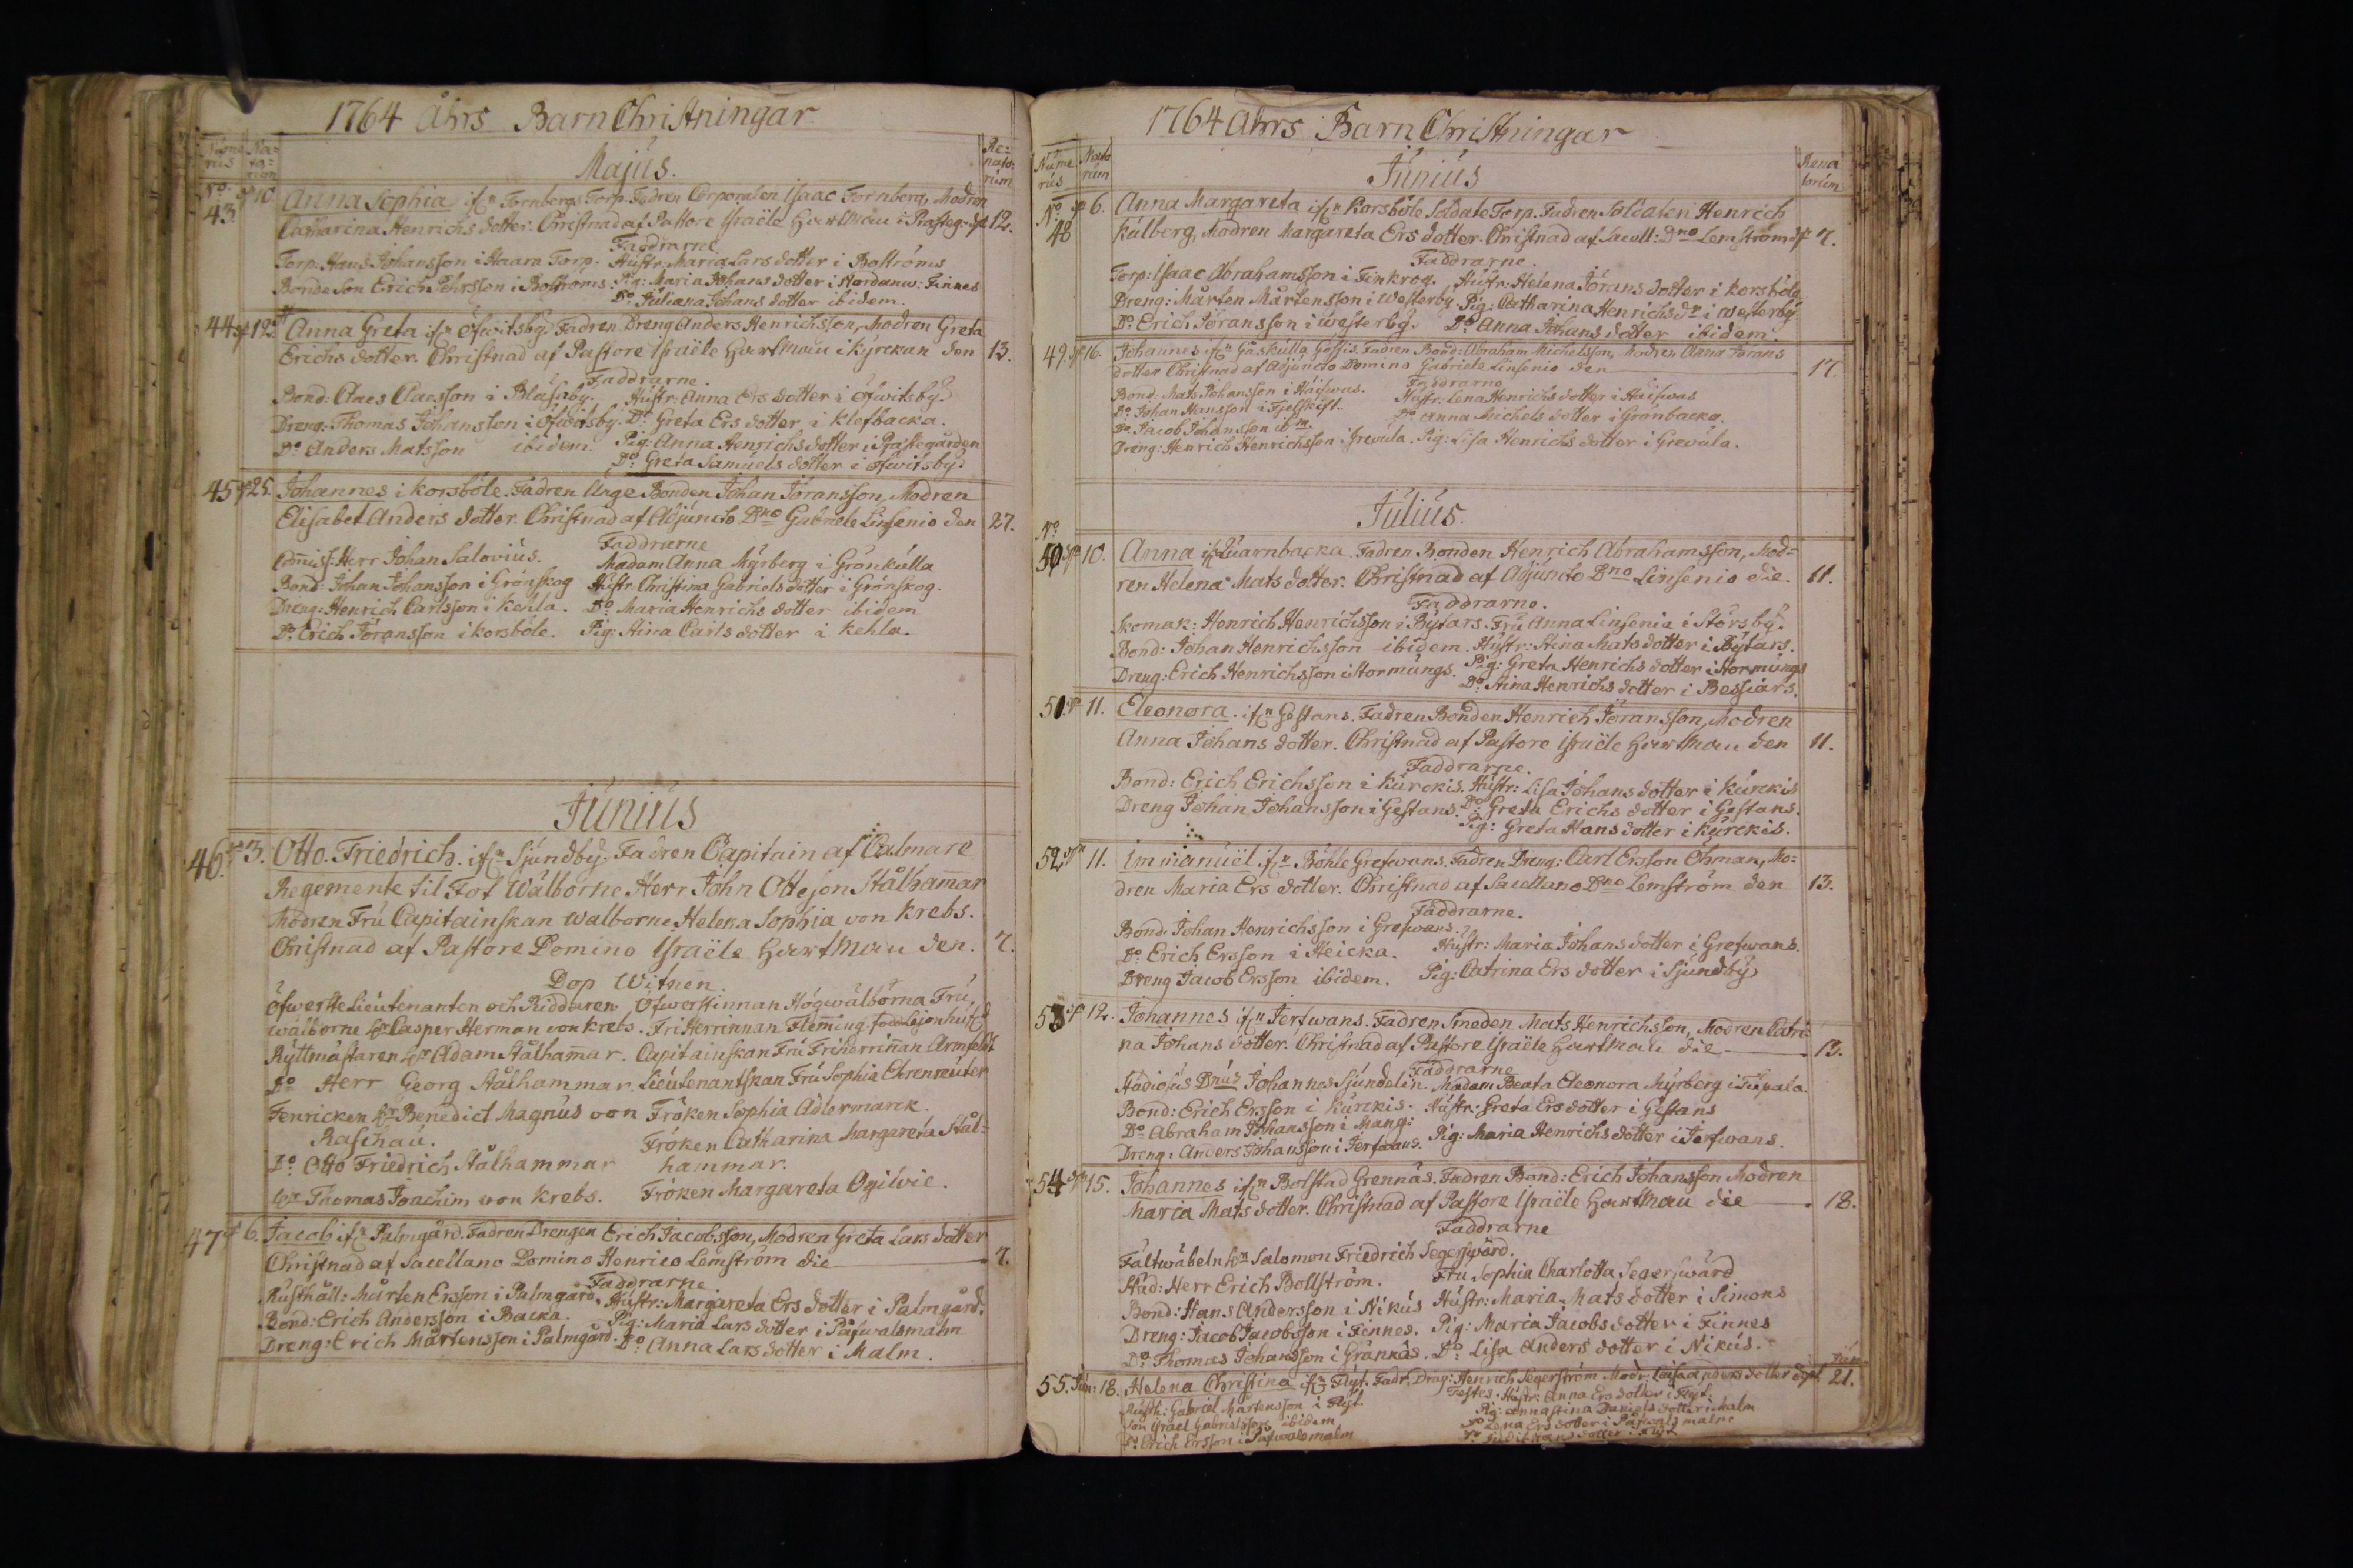 1764 Åhrs BarnChristningar
Nume rus Na= to= rum
Majus.
Re: nato: rum
No. 43. 10. Anna Sophia if:n Tornbergs Torp. Fadren Corporalen Isaac Tornberg, Modren
Catharina Henrichs dotter. Christnad af Pastore Israële Hartman i Prästeg: 12.
Faddrarne
Torp. Hans Johansson i Haara Torp. Hustr: Maria Lars dotter i Boströms
Bonde Son Erich Pehrsson i Boströms. Pig: Maria Johans dotter i Nordanw: Finnes
Do. Juliana Johans dotter ibidem.
44 12. Anna Greta if:n Ofwitsby. Fadren Dreng Anders Henrichsson, Modren Greta
Erichs dotter. Christnad af Pastore Israële Hartman i Kyrckan den 13.
Faddrarne.
Bond: Claes Claesson i Blasaby. Hustr: Anna Ers dotter i Ofwitsby.
Dreng: Thomas Johansson i Ofwitsby. Do. Greta Ers dotter i Klefbacka.
Do. Anders Matsson ibidem. Pig: Anna Henrichs dotter i Prästegården
Do. Greta Samuels dotter i Ofwitsby.
45 25. Johannes i Korsböle. Fadren Unge Bonden Johan Jöransson, Modren
Elisabet Anders dotter. Christnad af Adjuncto Dno Gabriele Linsenio den 27.
Faddrarne
Com̄iss: Herr Johan Salovius. Madam Anna Myrberg i Grönkulla
Bond: Johan Johansson i Grönskog Hustr. Christina Gabriels dotter i Grönskog.
Dreng: Henrich Carlsson i Kehla. Do. Maria Henrichs dotter ibidem
Do. Erich Jöransson i Korsböle. Pig: Stina Carls dotter i Kehla.
Junius
46. 3. Otto. Friedrich. if:n Sjundby. Fadren Capitain af Calmare
Regemente til Fot Wälborne Herr John Ottejon Stålham̄ar
Modren Fru Capitainskan Walborne Helena Sophia von Krebs.
Christnad af Pastore Domino Israële Hartman den. 7.
Dop Witnen.
Öfwerste Lieutenanten och Riddaren Öfwerstinnan Högwälborna Fru,
wälborne Hr Casper Herman von Krebs. Friherrinnan Flem̄ing, född Lejonhufd
Ryttmästaren Hr Adam Stålham̄ar. Capitainskan Fru Friherrin̄an Armfelt
Do Herr Georg Stålhammar. Lieutenantskan Fru Sophia Ehrenreuter
Fenricken Hr Benedict Magnus von Fröken Sophia Adlermarck.
Raschau. Fröken Catharina Margareta Stål=
Do. Otto Friedrich Stålhammar hammar.
Hr Thomas Joachim von Krebs. Fröken Margareta Ogilvie.
47 6. Jacob if:n Palmgård. Fadren Drengen Erich Jacobsson, Modren Greta Lars dotter
Christnad af Sacellano Domino Henrico Lemström die 7.
Faddrarne
Rusthåll: Mårten Ersson i Palmgård. Hustr: Margareta Ers dotter i Palmgård.
Bond: Erich Andersson i Backa. Pig: Maria Lars dotter i Påfwalsmalm
Dreng: Erich Mårtensson i Palmgård. Do. Anna Lars dotter i Malm.
1764 Ahrs BarnChristningar
Nume rus Nato rum
Junius
Rena torum
No. 48 6. Anna Margareta if:n Korsböle Soldate Torp. Fadren Soldaten Henrich
Kulberg, Modren Margareta Ers dotter. Christnad af Sacell: Dno Lemström 7.
Faddrarne.
Torp: Isaac Abrahamsson i Finkrog. Hustr: Helena Jörans dotter i Korsböle
Dreng: Mårten Mårtensson i Westerby. Pig: Catharina Henrichs dr i Westerby
Do. Erich Jöransson i Westerby. Do Anna Johans dotter ibidem.
49. 16. Johannes if:n Gåskulla Fadren Bond: Abraham Michelsson, Modren Anna Jörans
dotter Christnad af Adjuncto Domino Gabriele Linsenio den 17.
Faddrarne
Bond: Mats Johansson i Håifwas. Hustr: Lena Henrichs dotter i Håifwas
Do. Johan Mansson i Fjelskift. Do Anna Michels dotter i Grönbacka.
Do. Jacob Johansson ib m.
Dreng: Henrich Henrichsson i Grevula. Pig: Lisa Henrichs dotter i Grevula.
Julius.
No.
50 10. Anna if:n Quarnbacka. Fadren Bonden Henrich Abrahamsson, Mod=
ren Helena Mats dotter. Christnad af Adjuncto Dno Linsenio die. 11.
Faddrarne.
Skomak: Henrich Henrichsson i Bytars. Fru Anna Linsenia i Störsby.
Bond: Johan Henrichsson ibidem. Hustr: Stina Mats dotter i Bytars.
Dreng: Erich Henrichsson i Stormungs. Pig: Greta Henrichs dotter i Stormungs
Do. Stina Henrichs dotter i Bessiärs.
51. 11. Eleonora. if:n Gestans. Fadren Bonden Henrich Jöransson, Modren
Anna Johans dotter. Christnad af Pastore Israële Hartman den 11.
Faddrarne.
Bond: Erich Erichsson i Kurckis. Hustr: Lisa Johans dotter i Kurckis
Dreng Johan Johansson i Gestans. Do Greta Erichs dotter i Gestans.
Pig: Greta Hans dotter i Kurckis.
52. 11. Immanuël if:n Böhle Grefwans. Fadren Dreng: Carl Ersson Öhman, Mo:
dren Maria Ers dotter. Christnad af Sacellano Dno Lemström den 13.
Faddrarne.
Bond. Johan Henrichsson i Grefwans.
Do. Erich Ersson i Heicka. Hustr: Maria Johans dotter i Grefwans.
Dreng Jacob Ersson ibidem. Pig: Catrina Ers dotter i Sjundby
53 12. Johannes if:n Jerfwans. Fadren Smeden Mats Henrichsson, Modren Catri
na Johans dotter. Christnad af Pastore Israële Hartman die 13.
Faddrarne
Studiosus Dnus Johannes Sjundelin. Madam Beata Eleonora Myrberg i
Bond: Erich Ersson i Kurckis. Hustr: Greta Ers dotter i Gestans
Do Abraham Johansson i Mang:
Dreng: Anders Johansson i Jerfwans. Pig: Maria Henrichs dotter i Jerfwans.
54 15. Johannes if:n Bolstad Grennäs. Fadren Bond: Erich Johansson Modren
Maria Mats dotter. Christnad af Pastore Israële Hartman die 18.
Faddrarne
Fältwäbeln Hr Salomon Friedrich Segerswärd.
Stud: Herr Erich Bollström. Fru Sophia Charlotta Segerswärd
Bond: Hans Andersson i Nikus Hustr: Maria Mats dotter i Simons
Dreng: Jacob Jacobsson i Finnes. Pig: Maria Jacobs dotter i Finnes
Do. Thomas Johansson i Grännäs. Do: Lisa Anders dotter i Nikus.
55. Jun: 18. Helena Christina if:n Flyt. Fadr. Drag: Henrich Segerström Modr. Caisa Anders dotter dpt 21.
Testes. Hustr: Anna Ers dotter i Flyt.
Rusth: Gabriel Mårtensson i Flyt. Pig: Anna Stina Daniels dotter i Malm
Son Israel Gabrielsson ibidem Do Lena Ers dotter i Påfwals malm
Do. Erich Ersson i Påfwals malm